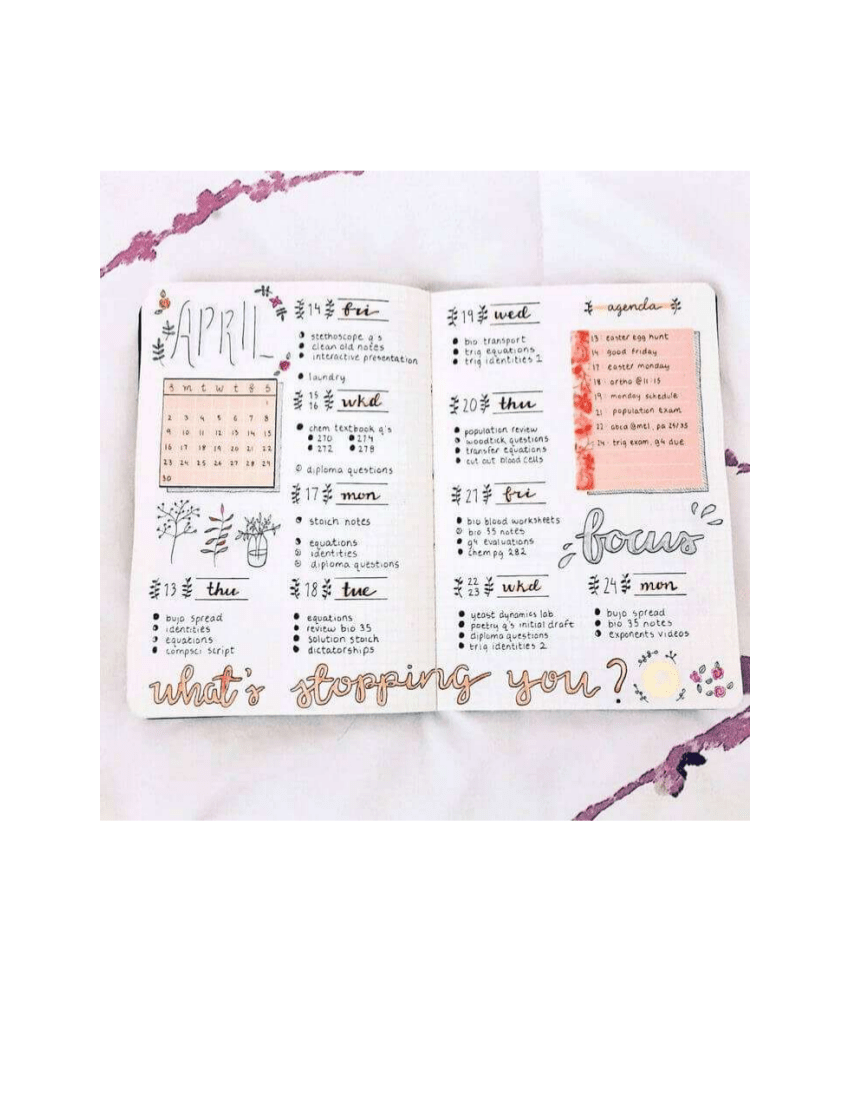 APRIL
s m t w t f s
1
2 3 4 5 6 7 8
9 10 11 12 13 14 15
16 17 18 19 20 21 22
23 24 25 26 27 28 29
30
13 thu
bujo spread
identities
equations
compsci script
14 fri
stethoscope q's
clean old notes
interactive presentation
laundry
15
16 wkd
chem textbook q's
270 274
272 278
diploma questions
17 mon
stoich notes
equations
identities
diploma questions
18 tue
equations
review bio 35
solution stoich
dictatorships
19 wed
bio transport
trig equations
trig identities 2
20 thu
population review
woodtick questions
transfer equations
cut out blood cells
21 fri
bio blood worksheets
bio 35 notes
g4 evaluations
chem pg 282
22
23 wkd
yeast dynamics lab
poetry q's initial draft
diploma questions
trig identities 2
agenda
13 easter egg hunt
14 good friday
17 easter monday
18 ortho @ 11:15
19 monday schedule
21 population exam
22 abca @ me1, pa 24/35
24 trig exam, g4 due
focus
24 mon
bujo spread
bio 35 notes
exponents videos
what's stopping you?